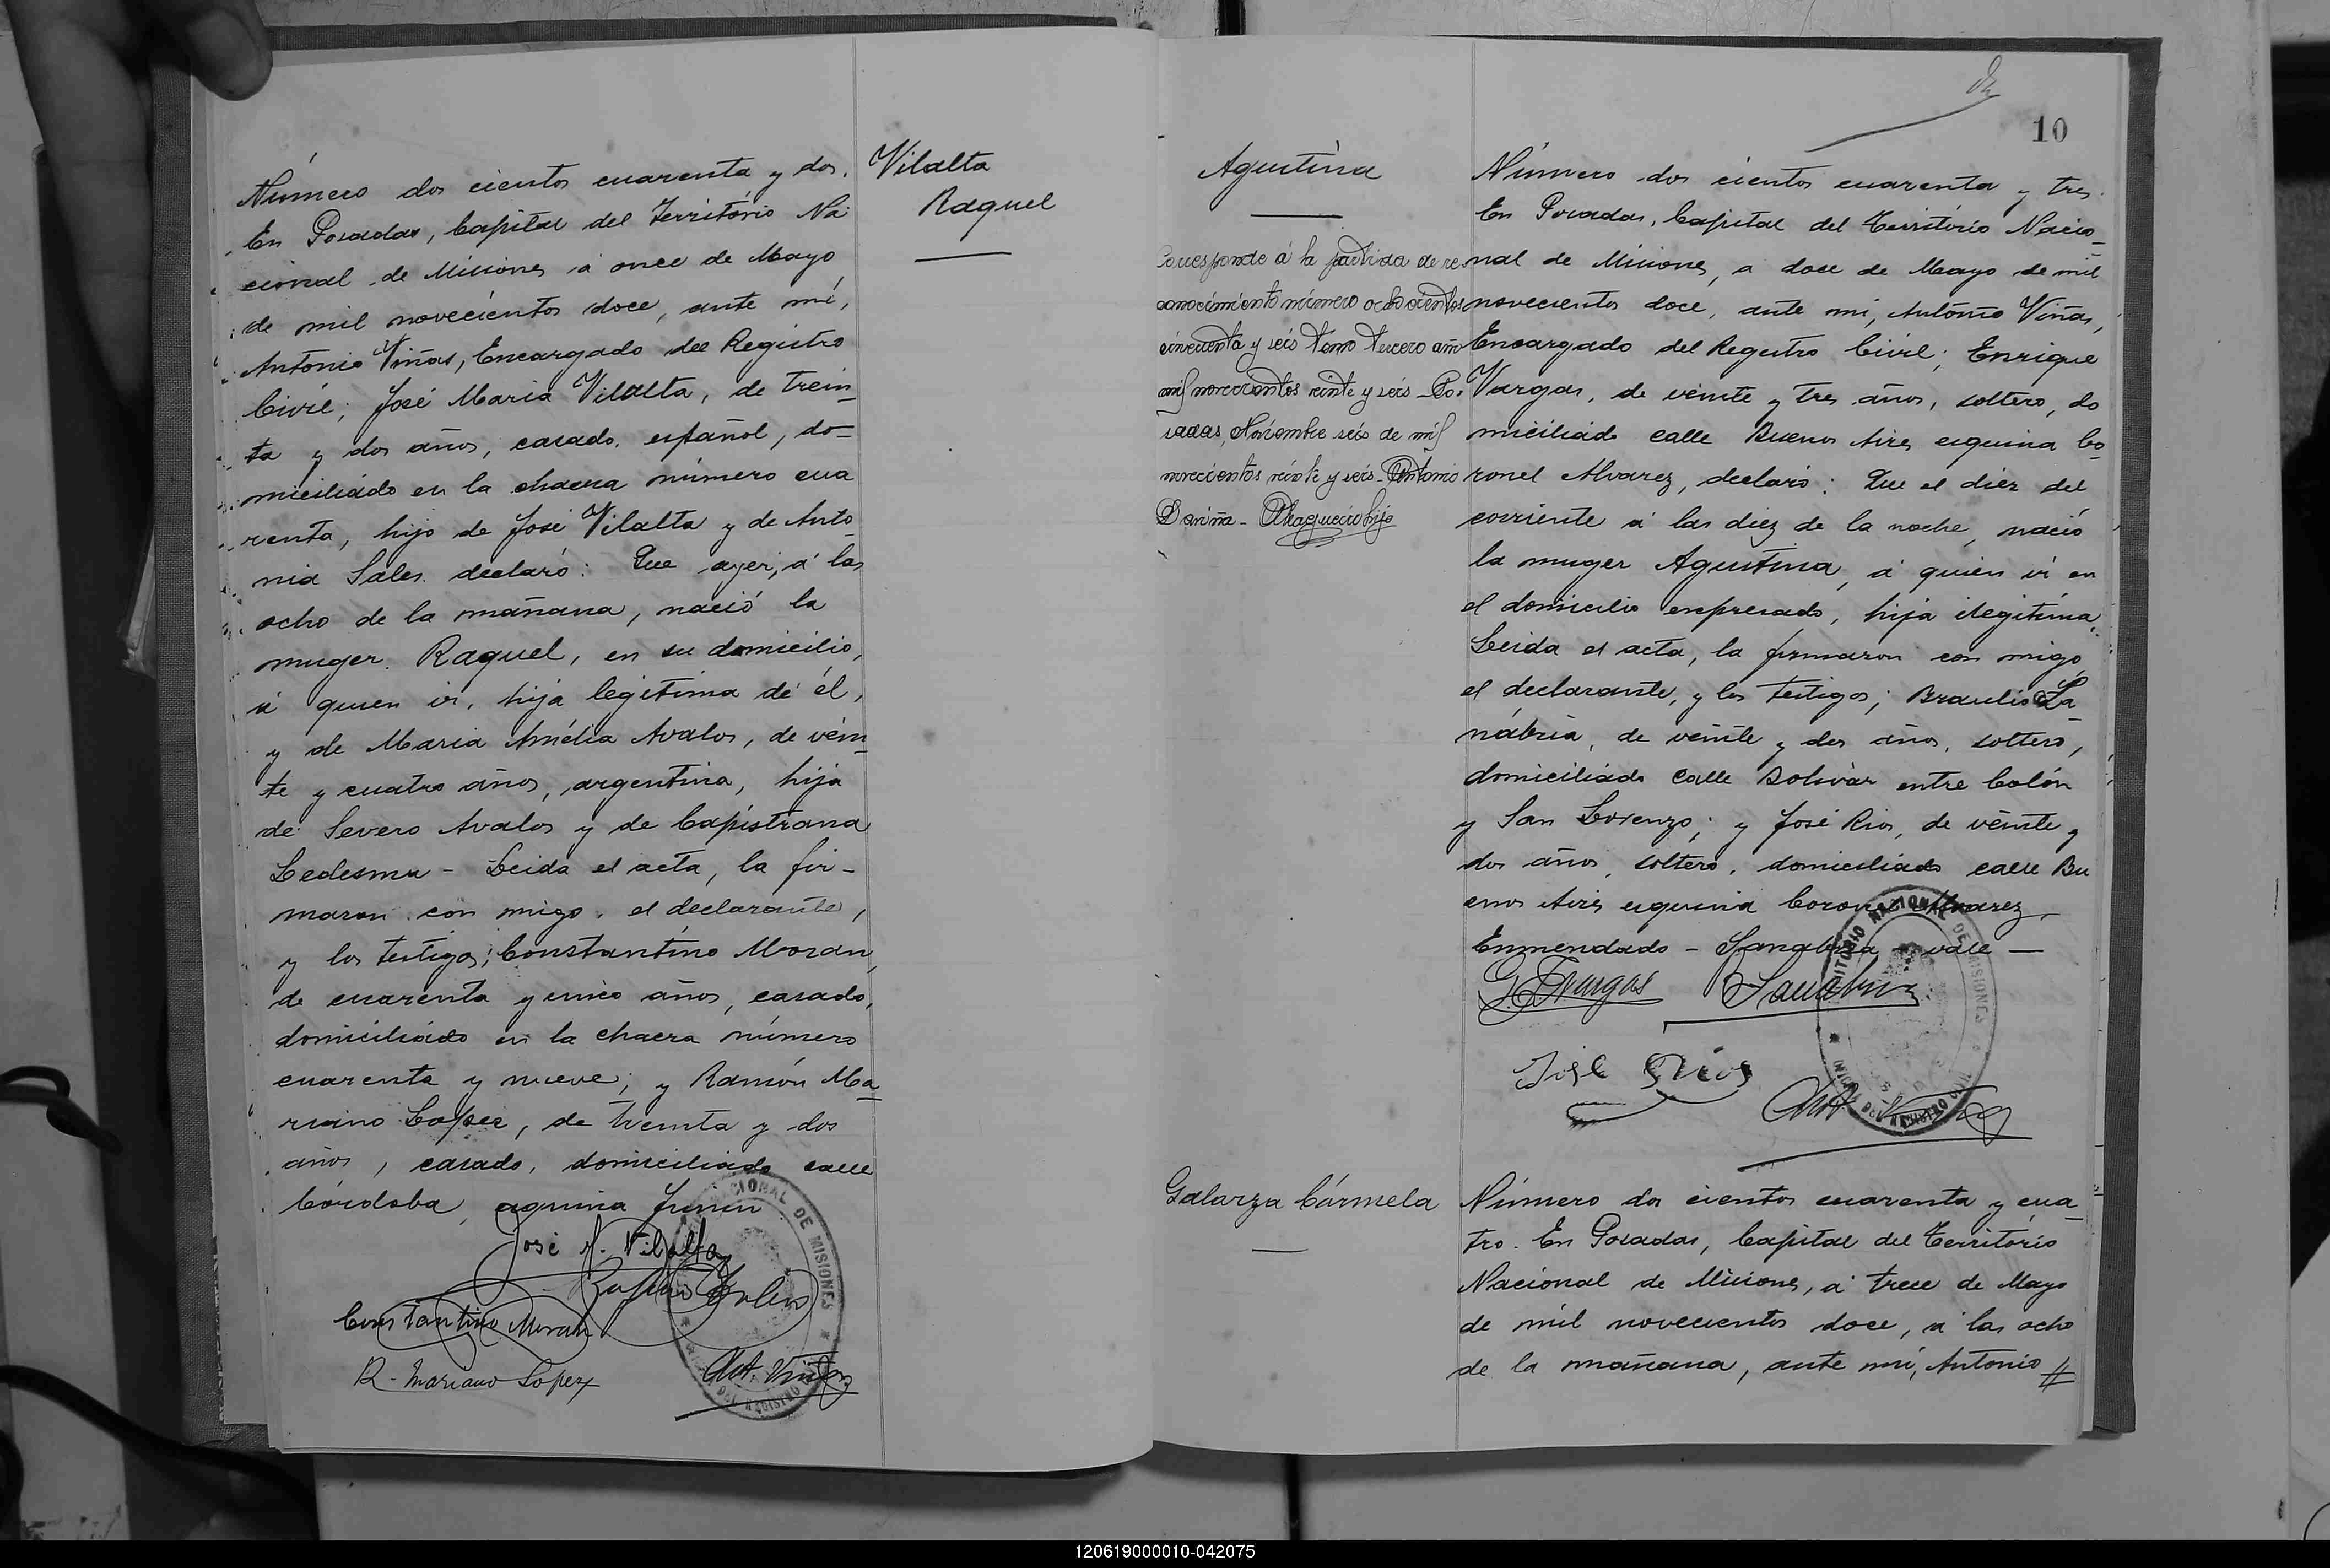 Número dos cientos cuarenta y dos.
En Posadas, Capital del Território Na
cional de Misiones á once de Mayo
de mil novecientos doce, ante mí,
Antonio Viñas, Encargado del Registro
Civil; José Maria Vilalta, de trein_
ta y dos años, casado, español, do_
miciliado en la chacra número cua
renta, hijo de José Vilalta y de Anto
nia Sales declaró: Que ayer, á las
ocho de la mañana, nació la
muger Raquel, en su domicilio,
á quien vi, hija legitima de él,
y de Maria Amélia Avalos, de vein_
te y cuatro años, argentina, hija
de Severo Avalos y de Capistrana
Ledesma - Leida el acta, la fir-
maron con migo, el declarante,
y los testigos; Constantino Moran,
de cuarenta y cinco años, casado,
domiciliado en la chacra número
cuarenta y nueve; y Ramón Ma_
riano Lopez, de treinta y dos
años, casado, domiciliado calle
Córdoba, esquina Junin
José M. Vilalta
Constantino Moran
R. Mariano Lopez
Ant. Viñas
Vilalta
Raquel
10
Agustina
Corresponde á la partida de re-
conocimiento número ochocientos
cincuenta y seis tomo tercero año
mil novecientos veinte y seis - Po-
sadas, Noviembre seis de mil
novecientos veinte y seis - Antonio
Número dos cientos cuarenta y tres.
En Posadas, Capital del Território Nacio_
nal de Misiones, a doce de Mayo de mil
novecientos doce, ante mi, Antonio Viñas,
Encargado del Registro Civil; Enrique
Vargas, de veinte y tres años, soltero, do
miciliado calle Buenos Aires esquina Co_
ronel Alvarez, declaró: Que el diez del
corriente á las diez de la noche, nació
la muger Agustina, á quien vi en
el domicilio expresado, hija ilegitima.
Leida el acta, la firmaron con migo
el declarante, y los testigos; Braulio Sa_
nábria, de veinte y dos años, soltero,
domiciliado calle Bolivar entre Colón
y San Lorenzo; y José Rios, de veinte y
dos años, soltero, domiciliado calle Bu
enos Aires esquina Coronel Alvarez_
Enmendado - Sanabria - vale -
Vargas B Sanabria
José Rios
Ant Viñas
Galarza Cármela
Número dos cientos cuarenta y cua_
tro. En Posadas, Capital del Território
Nacional de Misiones, á trece de Mayo
de mil novecientos doce, á las ocho
de la mañana, ante mí, Antonio //
120619000010-042075